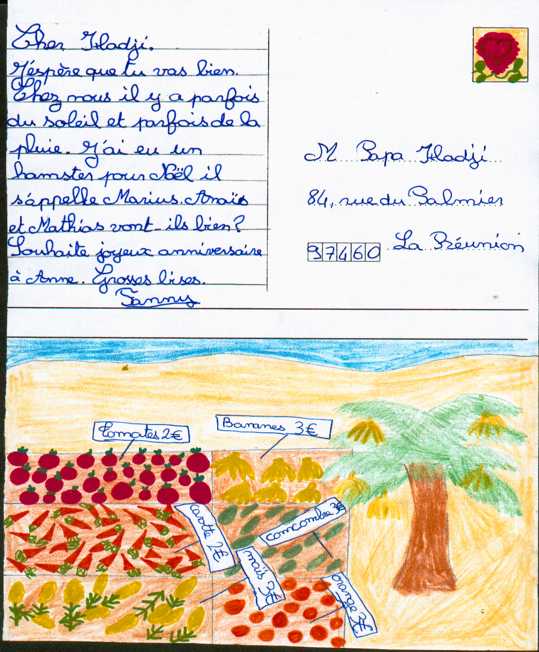 Cher Hadji.
J'espère que tu vas bien.
Chez nous il y a parfois
du soleil et parfois de la
pluie. J'ai eu un
hamster pour Noël il
s'appelle Marius. Anaïs
et Mathias vont-ils bien?
Souhaite joyeux anniversaire
à Anne. Grosses bises.
Fanny
M Papa Hadji
84, rue du Palmier
97460 La Réunion
Tomates 2€
Bananes 3€
carotte 2€
concombre 3€
maïs 2€
orange 2€